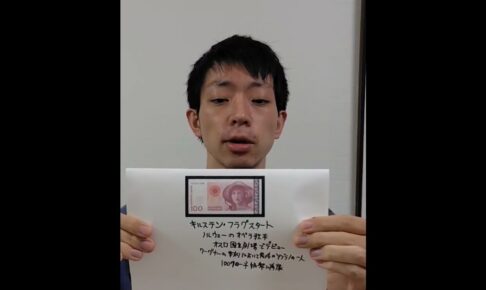 100
キルステン・フラグスタート
ノルウェーのオペラ歌手
オスロ国立劇場でデビュー
ワーグナーの
100クローネ紙幣の肖像